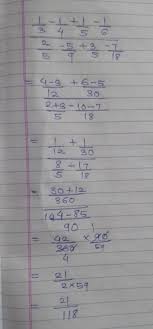 1/3 - 1/4 + 1/5 - 1/6
2/5 - 5/9 + 3/5 - 7/18
4-3/12 + 6-5/30
2+3/5 - 10-7/18
= 1/12 + 1/30
8/5 - 17/18
= 30+12/360
144-85/90
= 42/360 × 90/59
4
= 21/2×59
= 21/118